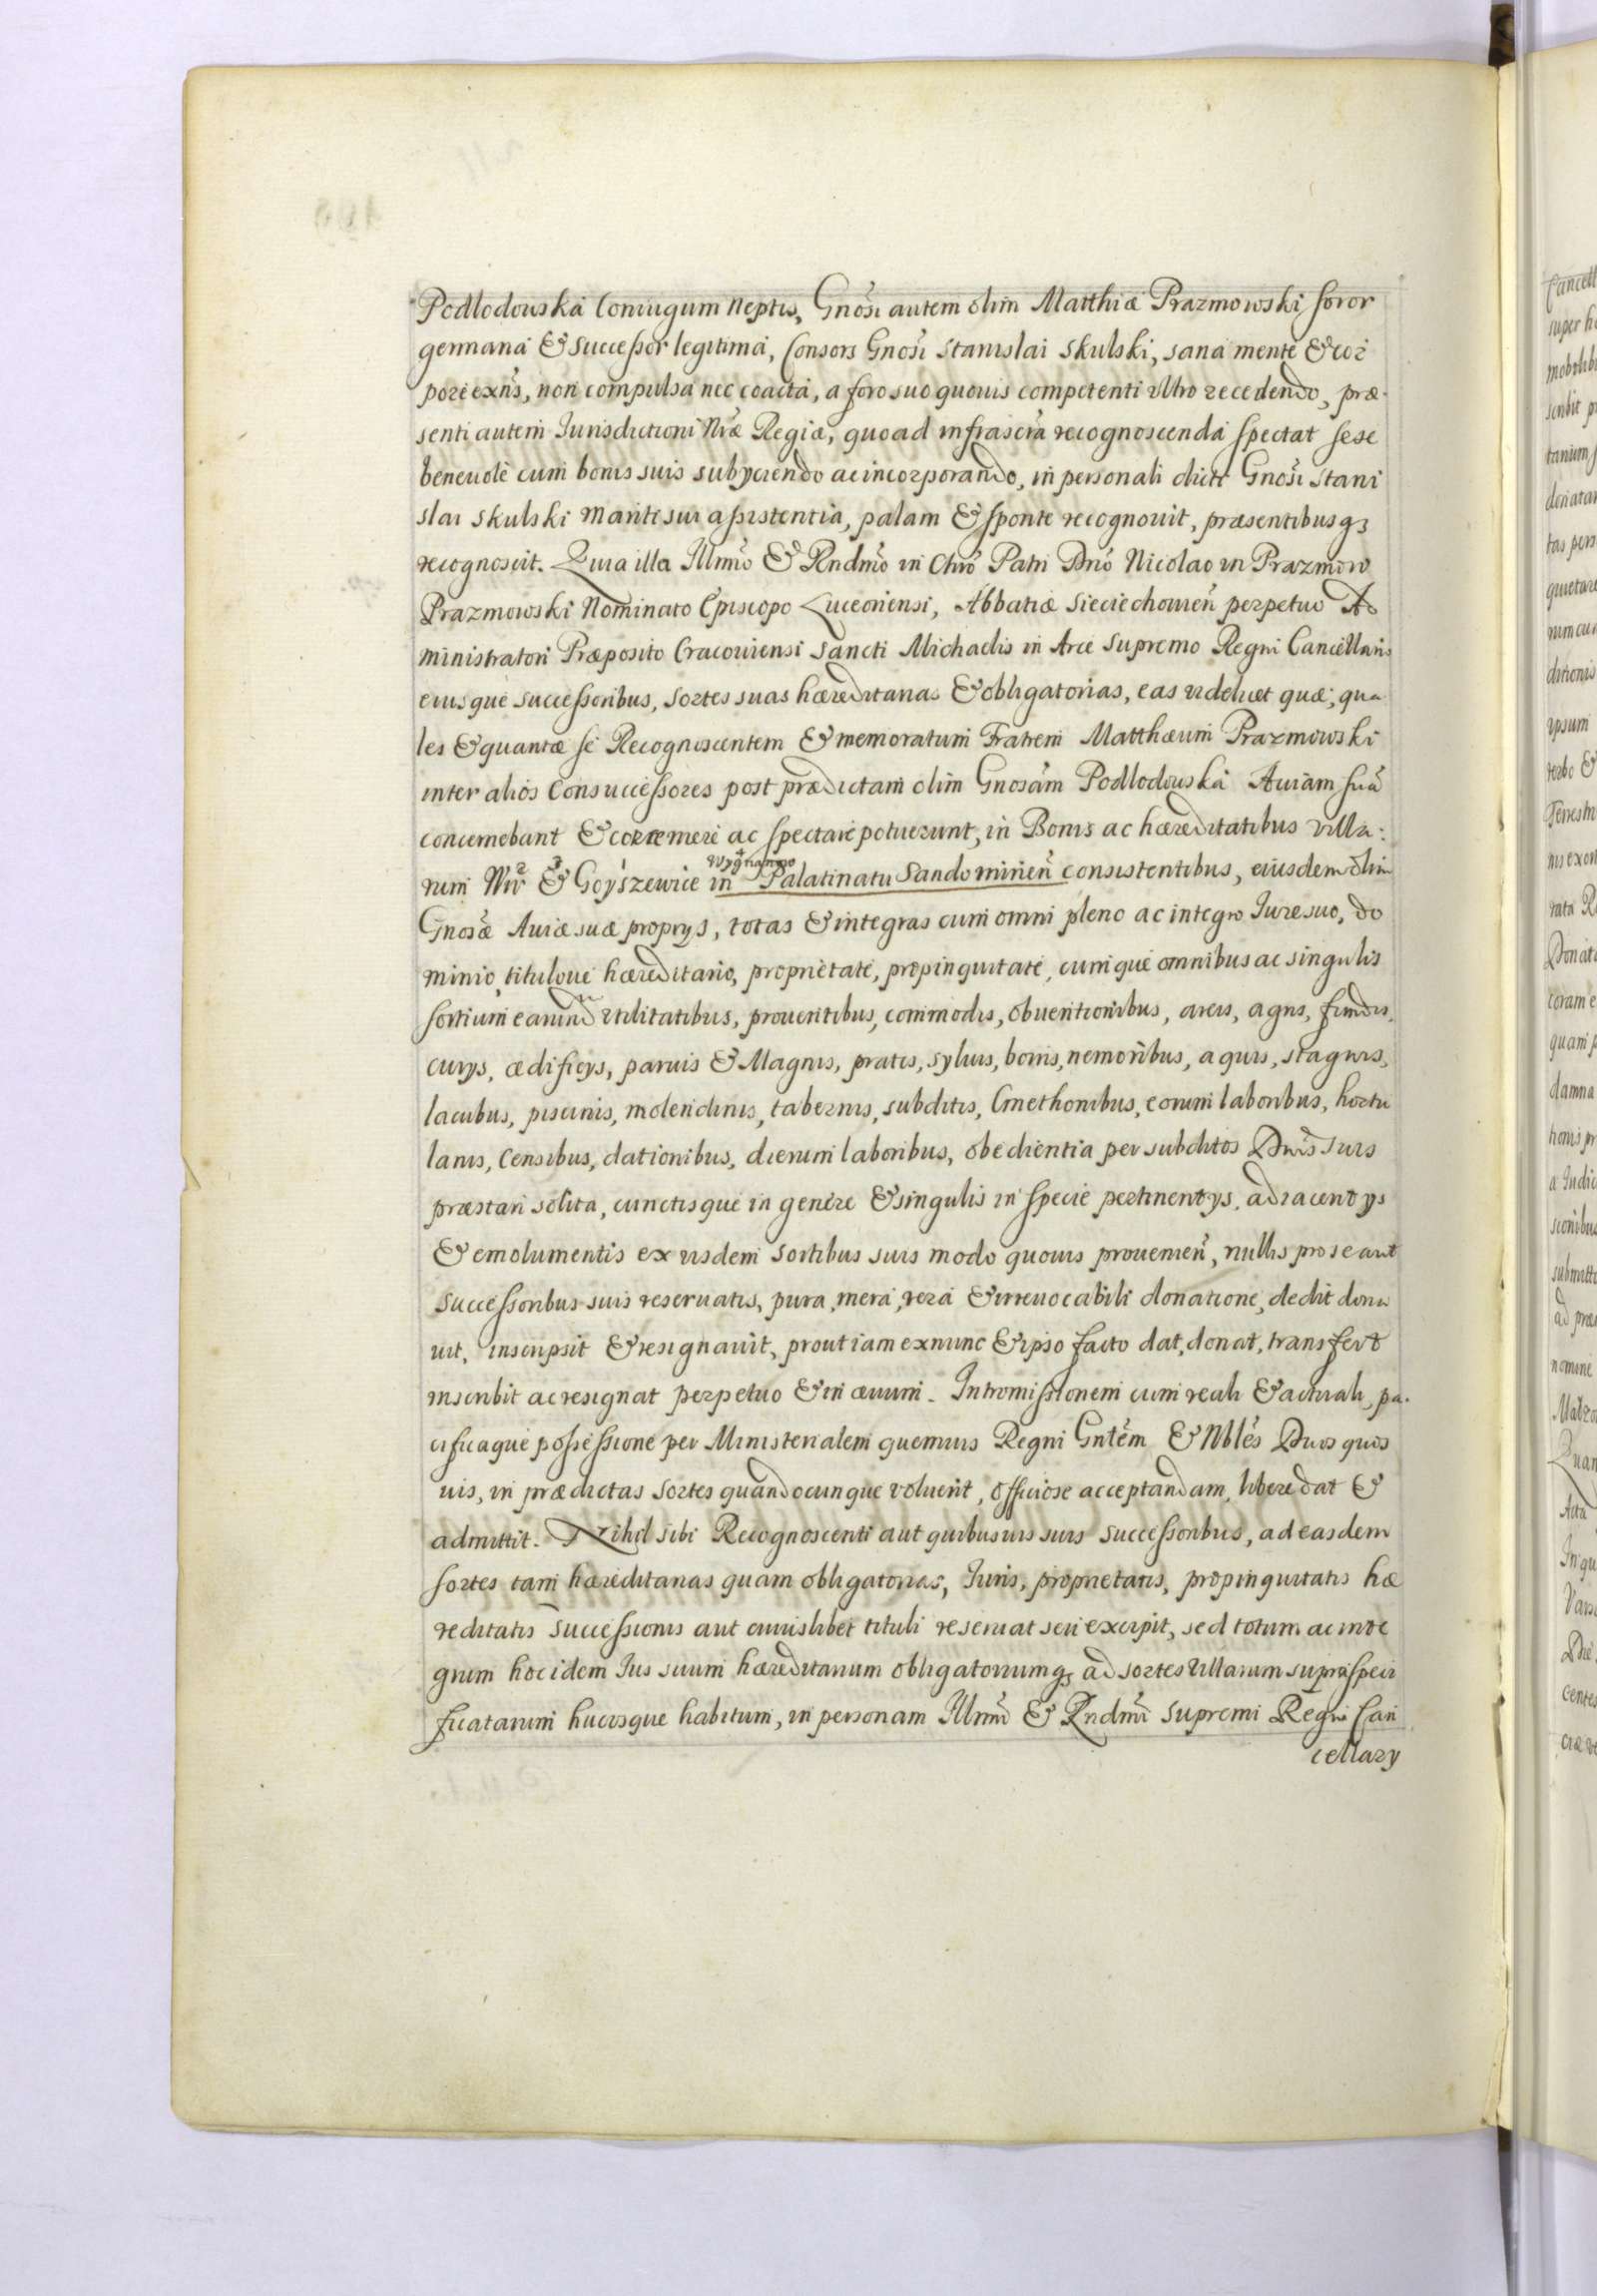 Podlodouska Coniugum neptis, Gnosi autem olim Matthiæ Prazmowski soror
germana & successor legitima, Consors Gnosi Stanislai Skulski, sana mente & cor
pore exñs, non compulsa nec coacta, a foro suo quouis competenti ultro recedendo, præ-
senti autem Jurisdictioni Nrӕ Regiæ, quoad infrascra recognoscenda spectat sese
beneuole cum bonis suis subyciendo ac incorporando, in personali dicti Gnosi Stani
slai Skulski mariti sui assistentia, palam & sponte recognouit, præsentibusq3
recognoscit. Quia illa Illmo & Rndmo in Chro Patri Dno Nicolao in Prazmow
Prazmowski Nominato Episcopo Luceoriensi, Abbatiæ Sieciechouien perpetuo Ad
ministratori Præposito Cracouiensi Sancti Michaelis in Arce Supremo Regni Cancellario
eiusque successoribus, sortes suas hæreditarias & obligatorias, eas videlicet quæ, qua
les & quantæ se Recognoscentem & memoratum Fratrem Matthæum Prazmowski
inter alios Consuccessores post prædictam olim Gnosam Podlodouska Auiam suã
concernebant & concernere ac spectare potuerunt, in Bonis ac hæreditatibus villa:
rum & Goyszewice in Palatinatu Sandomirien consistentibus, eiusdem olim
Gnosæ Auiæ suæ proprys, totas & integras cum omni pleno ac integro Jure suo, do
minio, tituloue hæreditario, proprietate, propinquitate, cumque omnibus ac singulis
sortium earund vtilitatibus, prouentibus, commodis, obuentionibus, areis, agris, fundis,
curys, ædificys, paruis & Magnis, pratis, syluis, borris, nemoribus, aquis, stagnis,
lacubus, piscinis, molendinis, tabernis, subditis, Cmethonibus, eorum laboribus, hortu
lanis, Censibus, dationibus, dierum laboribus, obedientia per subditos Dnis suis
præstari solita, cunctisque in genere & singulis in specie pertinentys, adiacentys
& emolumentis ex ijsdem sortibus suis modo quouis prouenien, nullis pro se aut
successoribus suis reseruatis, pura, mera, vera & irreuocabili donatione, dedit dona
uit, inscripsit & resignauit, prout iam exnunc & ipso facto dat, donat, transfert
inscribit ac resignat perpetuo & in æuum. Intromissionem cum reali & actuali, pa-
cificaque possessione per Ministerialem quemuis Regni Gntem & Nbles Duos quos
uis, in prædictas sortes quandocunque voluerit, officiose acceptandam, libere dat &
admittit. Nihil sibi Recognoscenti aut quibusuis suis successoribus, ad easdem
sortes tam hæreditarias quam obligatorias, Juris, proprietatis, propinquitatis hæ
reditatis successionis aut cuiuslibet tituli reseruat seu excipit, sed totum ac inte
grum hoc idem Jus suum hæreditarium obligatoriumq3 ad sortes villarum supraspeci
ficatarum hucusque habitum, in personam Illmi & Rndmi Supremi Regni Can
cellary